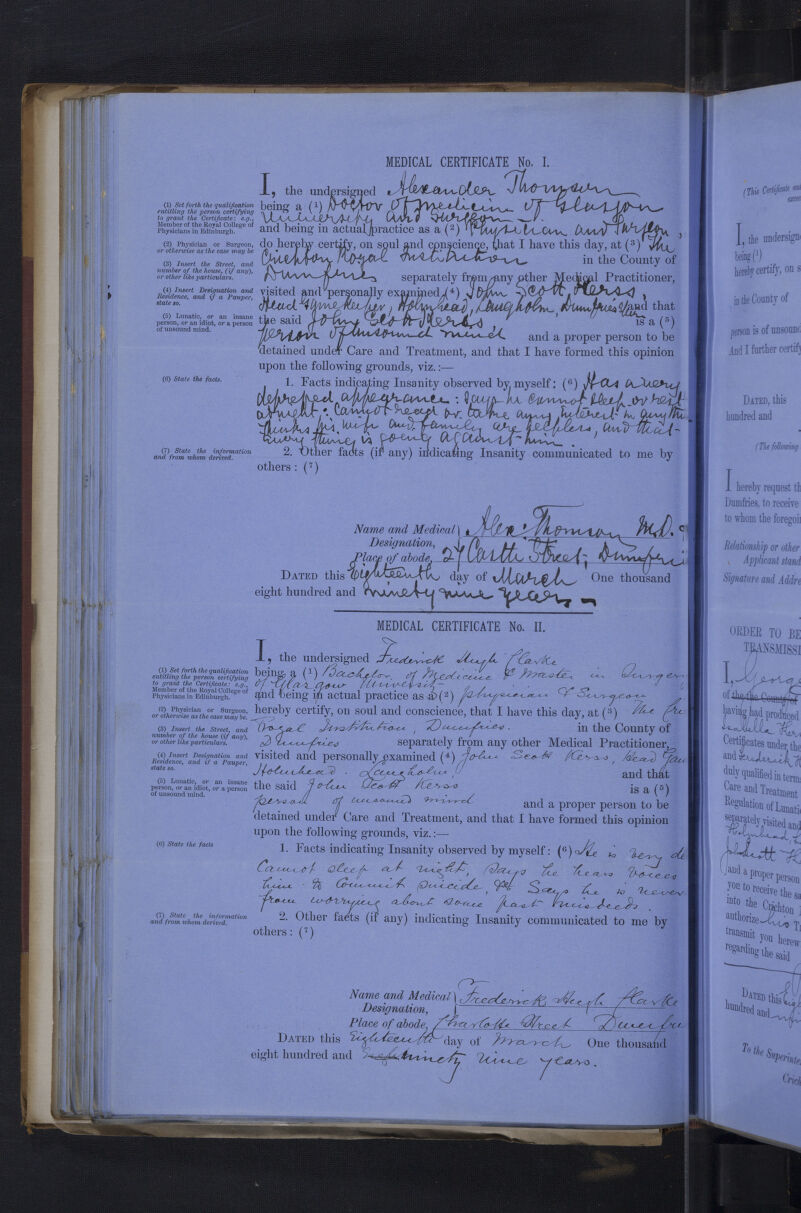 MEDICAL CERTIFICATE No. I.
(1) Set forth the qualification
entitling the person certifying
to grant the Certificate: e.g.,
Member of the Royal College of
Physicians in Edinburgh.
(2) Physician or Surgeon,
or otherwise as the case may be
(3) Insert the Street, and
number of the house, (if any),
or other like particulars.
(4) Insert Designation and
Residence, and if a Pauper,
state so.
(5) Lunatic, or an insane
person, or an idiot, or a person
of unsound mind.
(6) State the facts.
(7) State the information
and from whom derived.
I, the undersigned Alexander Thomson
being a (1) Doctor of medicine of Glasgow
University and Surgeon
and being in actual practice as a (2) Physician and Surgeon,
do hereby certify, on soul and conscience, that I have this day, at (3) The
Crichton Royal Institution in the County of
Dumfries separately from any other Medical Practitioner,
visited and personally examined (4) John Scott Kerss,
Head Gamekeeper, Holmhead, Langholm, Dumfries and that
the said John Scott Kerss is a (5)
person of unsound mind and a proper person to be
detained under Care and Treatment, and that I have formed this opinion
upon the following grounds, viz.:—
1. Facts indicating Insanity observed by myself: (6) Has a very
depressed appearance: says he cannot sleep or rest
at night: Cannot read or take any interest in any
Thinks his wife and family are and that
every thing is going against him.
2. Other facts (if any) indicating Insanity communicated to me by
others: (7)
Name and Medical Designation, Alex: Thomson M.D.
Place of abode, 27 Castle Street, Dumfries
DATED this Eighteenth day of March One thousand
eight hundred and ninety nine years
MEDICAL CERTIFICATE No. II.
(1) Set forth the qualification
entitling the person certifying
to grant the Certificate: e.g.,
Member of the Royal College of
Physicians in Edinburgh.
(2) Physician or Surgeon,
or otherwise as the case may be.
(3) Insert the Street, and
number of the house (if any),
or other like particulars.
(4) Insert Designation and
Residence, and if a Pauper,
state so.
(5) Lunatic, or an insane
person, or an idiot, or a person
of unsound mind.
(6) State the facts
(7) State the information
and from whom derived.
I, the undersigned Frederick Hugh Clarke
being a (1) Bachelor of Medicine & Master in Surgery
of Glasgow University
and being in actual practice as a (2) physician & Surgeon
hereby certify, on soul and conscience, that I have this day, at (3) The
Royal Institution, Dumfries. in the County of
Dumfries separately from any other Medical Practitioner,
visited and personally examined (4) John Scott Kerss, Head
Holmhead. Langholm, and that
the said John Scott Kerss is a (5)
person of unsound mind and a proper person to be
detained under Care and Treatment, and that I have formed this opinion
upon the following grounds, viz.:—
1. Facts indicating Insanity observed by myself: (6) He is very
Cannot sleep at night, says he hears voices
him to commit suicide, Says he is never
from worrying about some past misdeeds.
2. Other facts (if any) indicating Insanity communicated to me by
others: (7)
Name and Medical Designation, Frederick Hugh Clarke
Place of abode, Charlotte Street Dumfries
DATED this Eighteenth day of March One thousand
eight hundred and ninety nine years.
I, the undersign
being (1)
hereby certify, on s
in the County of
person is of unsound
And I further certify
DATED, this
hundred and
(The following
I hereby request th
Dumfries, to receive
to whom the foregoin
Relationship or other
Applicant stand
Signature and Addre
ORDER TO BE
TRANSMISSI
I, George
of the the County of
having had produced
Isabella
Certificates under the
and Frederick
duly qualified in term
Care and Treatment
Regulation of Lunati
separately visited and
and a proper person
you to receive the sa
into the Crichton
authorize
transmit you herew
regarding the said
DATED this
hundred and
To the Superinte